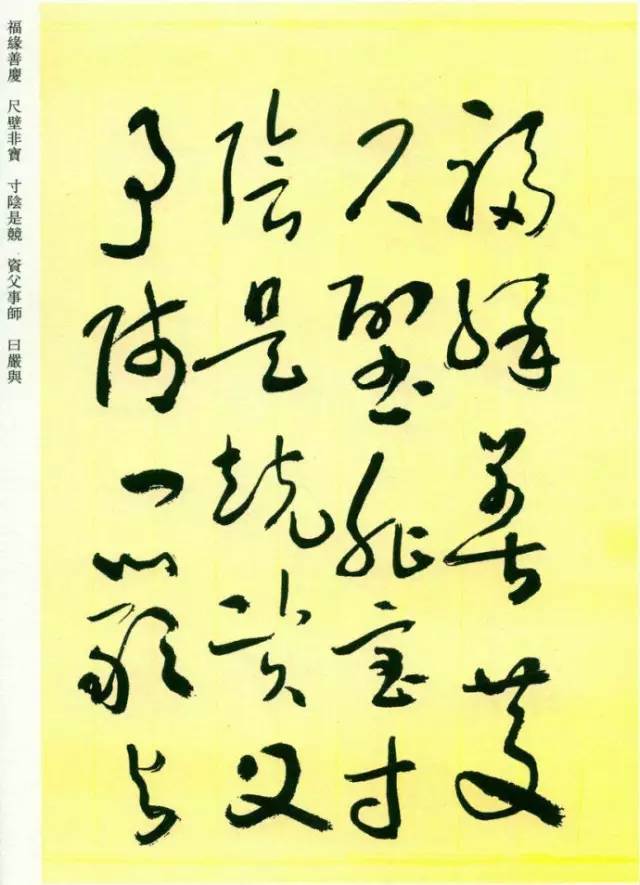 福緣善慶
尺璧非寶寸
陰是競資父
事師曰嚴與
福緣善慶 尺壁非寶 寸陰是競 資父事師 曰嚴與